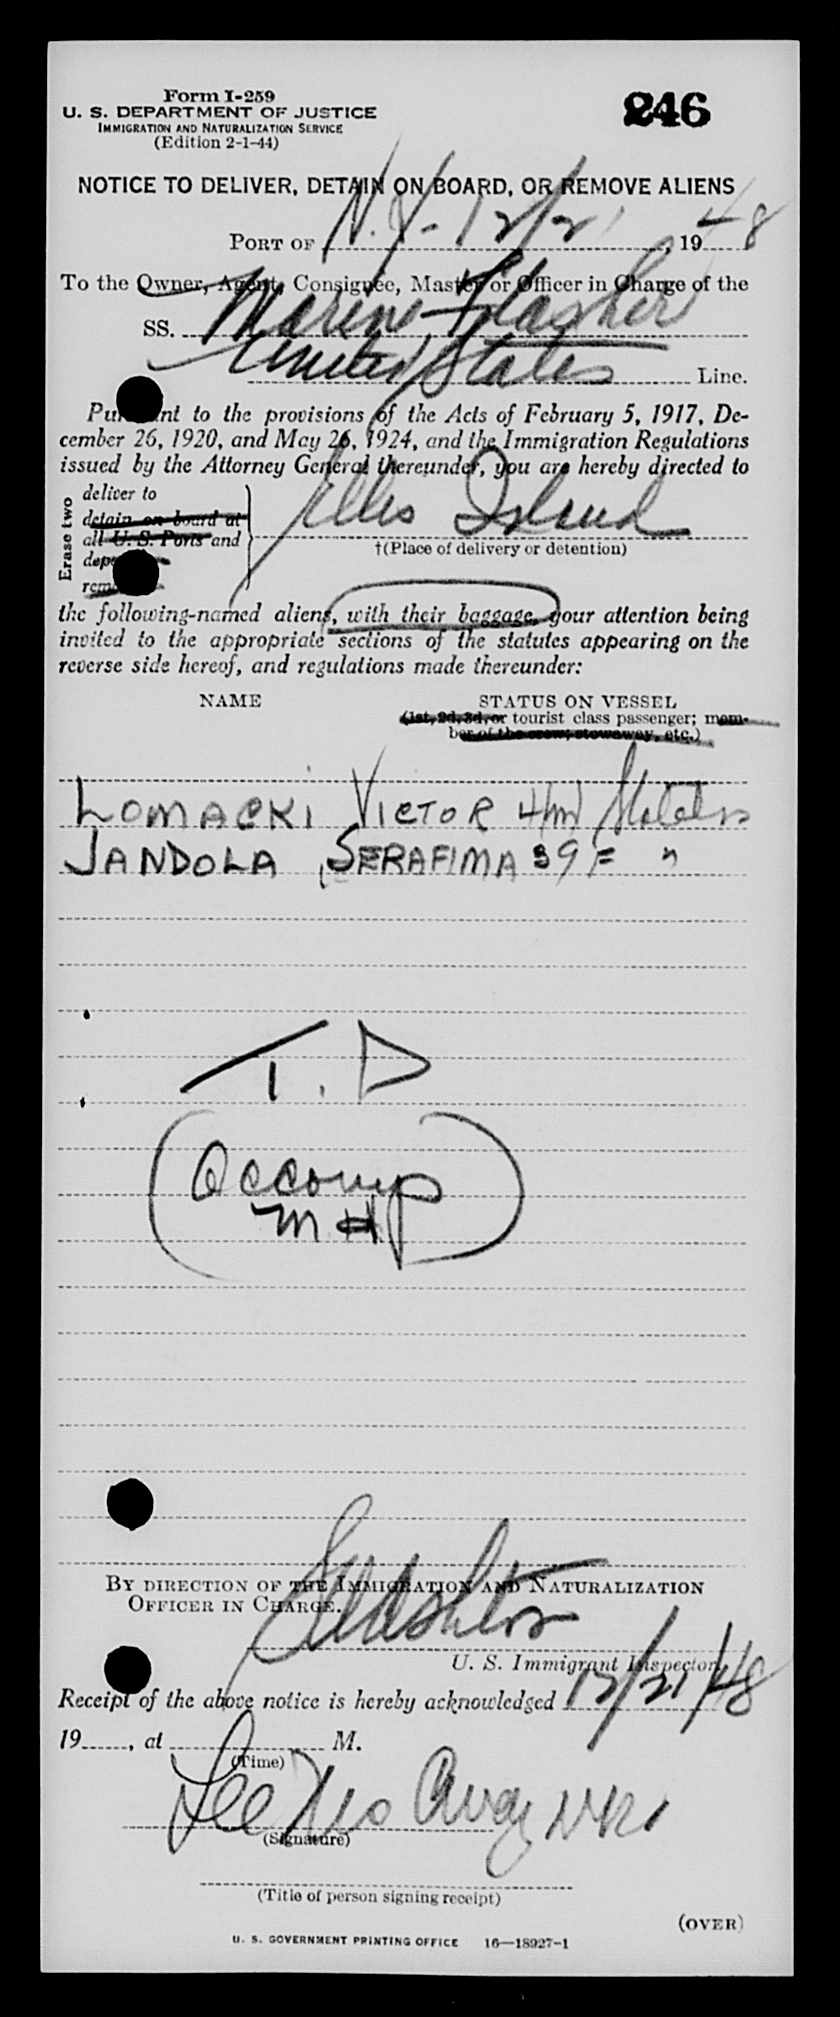 Form I-259
U. S. DEPARTMENT OF JUSTICE
IMMIGRATION AND NATURALIZATION SERVICE
(Edition 2-1-44)
246
NOTICE TO DELIVER, DETAIN ON BOARD, OR REMOVE ALIENS
PORT OF N.Y. 12/21, 1948
To the Owner, Agent, Consignee, Master or Officer in Charge of the
SS. Marine Flasher
United States Line.
to the provisions of the Acts of February 5, 1917, De-
cember 26, 1920, and May 26, 1924, and the Immigration Regulations
issued by the Attorney General thereunder, you are hereby directed to
Erase two
deliver to
detain on board at
all U. S. Ports and
Ellis Island
†(Place of delivery or detention)
the following-named aliens, with their baggage, your attention being
invited to the appropriate sections of the statutes appearing on the
reverse side hereof, and regulations made thereunder:
NAME STATUS ON VESSEL
(1st, 2d, 3d, or tourist class passenger; mem-
ber of the crew; stowaway, etc.)
LOMACKI VICTOR
JANDOLA, SERAFIMA 39 F "
T. D
(Accomp
BY DIRECTION OF THE IMMIGRATION AND NATURALIZATION
OFFICER IN CHARGE.
U. S. Immigrant Inspector.
Receipt of the above notice is hereby acknowledged 12/21/48
19......, at M.
(Time)
(Signature)
(Title of person signing receipt)
(OVER)
U. S. GOVERNMENT PRINTING OFFICE 16—18927-1